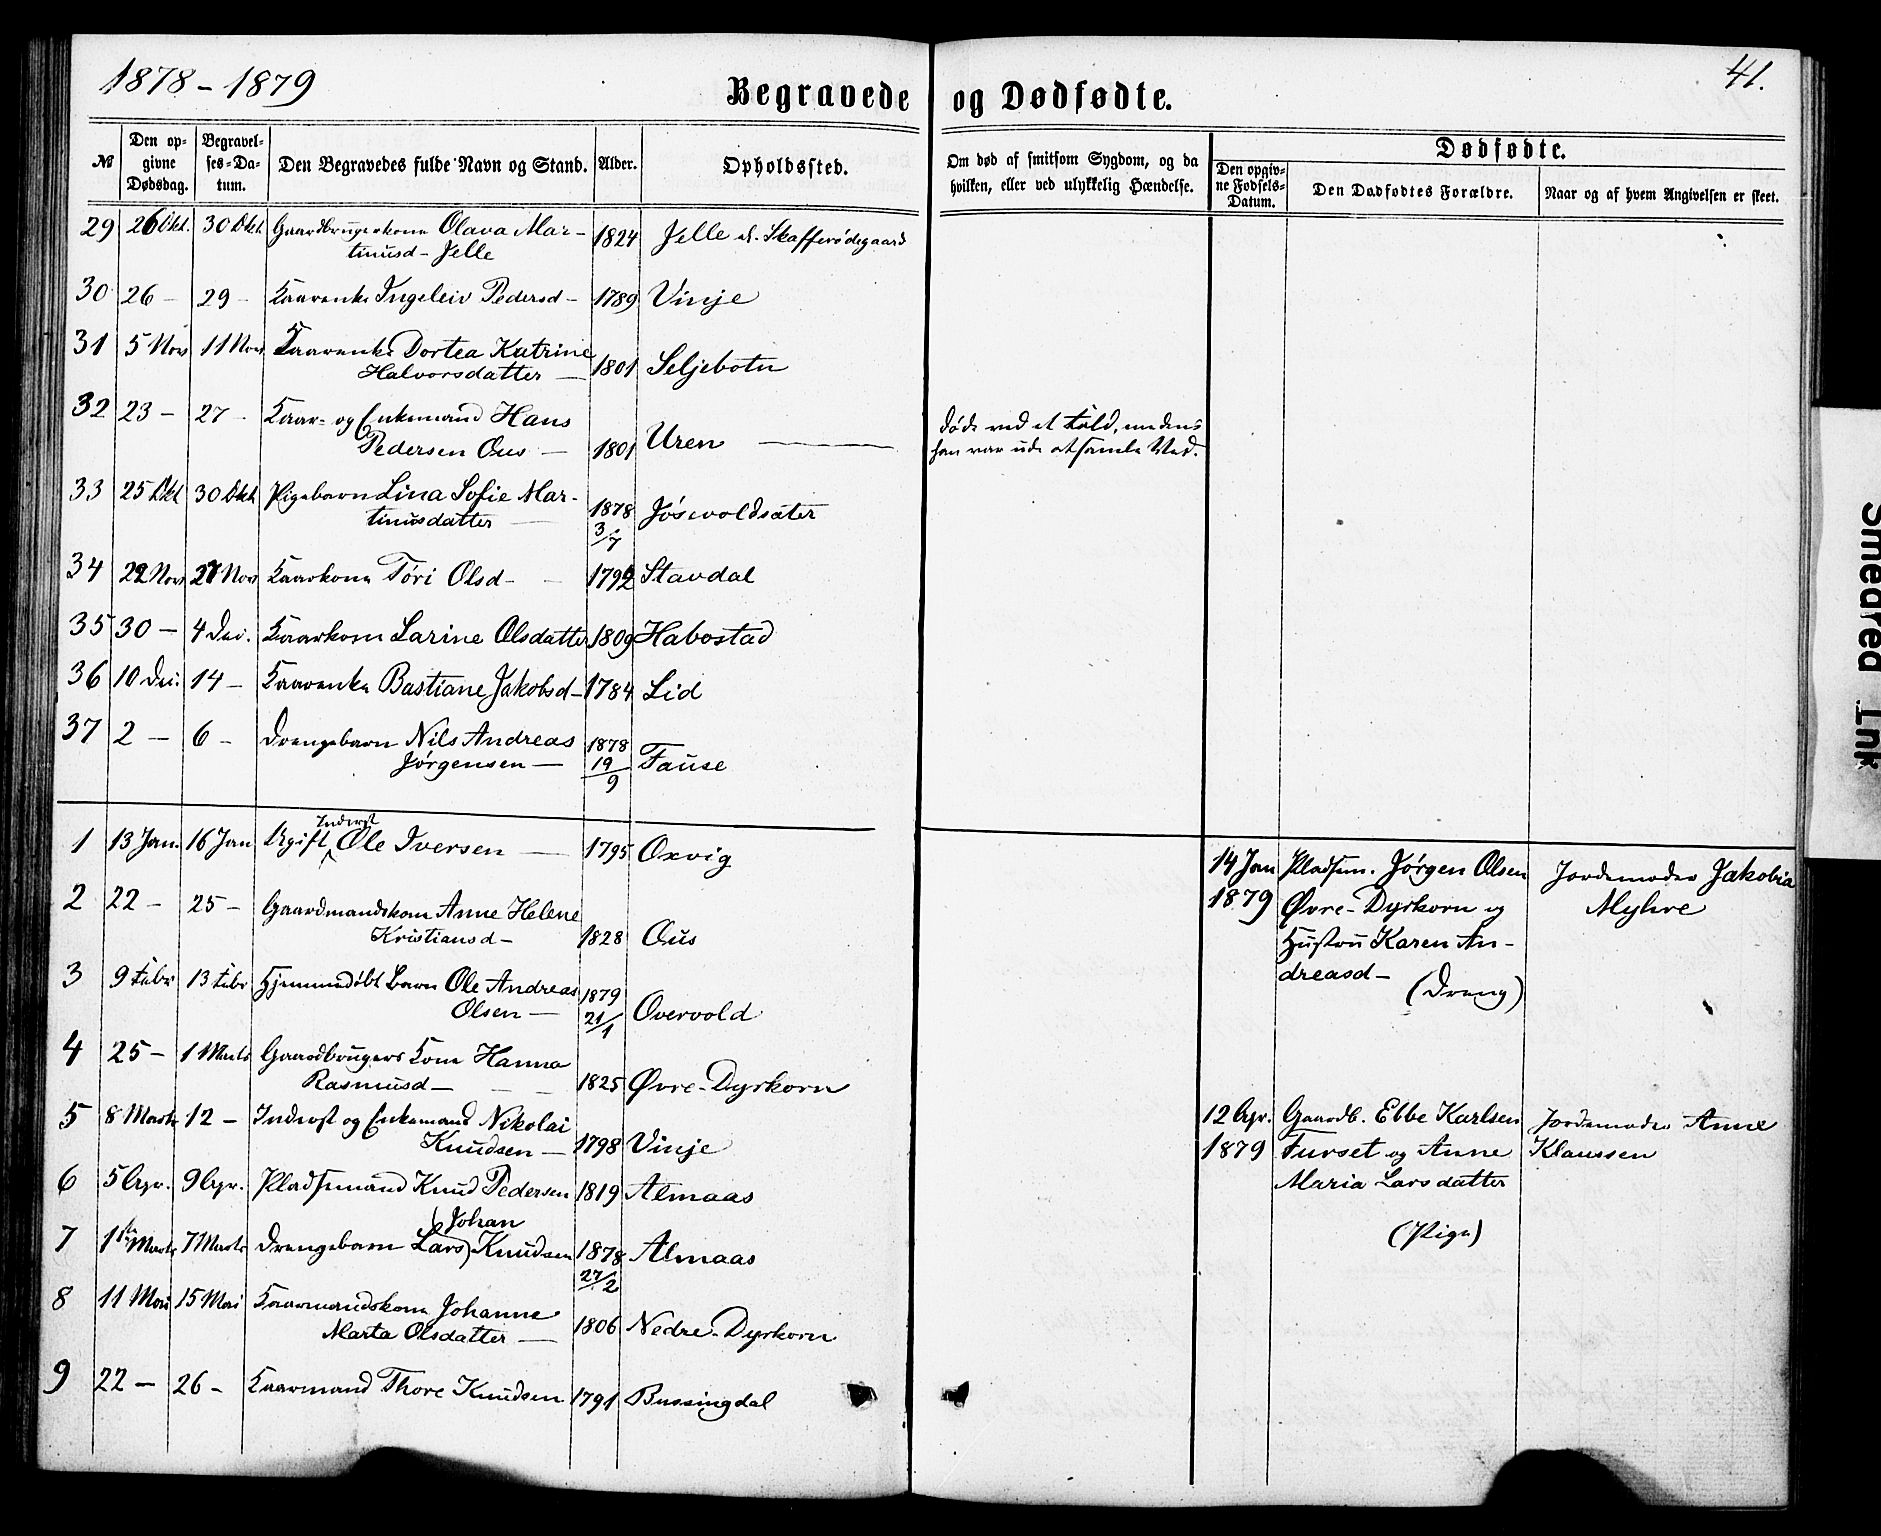 1878 - 1879
41.
Begravede og Dødfødte.
№
Den op-
givne
Dødsdag.
Begravel-
ses-Da-
tum.
Den Begravedes fulde Navn og Stand.
Alder.
Opholdssted.
Om død af smitsom Sygdom, og da
hvilken, eller ved ulykkelig Hændelse.
Dødfødte.
Den opgiv-
ne Fødsels-
Datum.
Den Dødfødtes Forældre.
Naar og af hvem Angivelsen er skeet.
29 26 Okt. 30 Okt. Gaardbrugerkone Olava Mar- 1824 Jelle
tinusd - Jelle
30 26 - 29 - Kaarenke Ingeleiv Pedersd - 1789 Vinje
31 5 Nov 11 Nov. Kaarenke Dortea Katrine
Halvorsdatter - 1801 Seljebotn
32 23 - 27 - Kaar- og Enkemand Hans
Pedersen Ous - 1801 Uren -
døde ved et Fald, medens
han var ude at samle Ved.
33 25 Okt 30 Okt Pigebarn Lina Sofie Mar-
tinusdatter - 1878 3/7 Jøsevoldsæter
34 22 Nov 27 Nov Kaarkone Tóri Olsd - 1792 Stavdal
35 30 - 4 Dec. Kaarkone Larine Olsdatter 1809 Habostad
36 10 Dec. 14 - Kaarenke Bastiane Jakobsd - 1784 Lid
37 2 - 6 - Drengebarn Nils Andreas
Jørgensen - 1878 19/9 Fause
Inderst
1 13 Jan. 16 Jan Ugift Ole Iversen - 1795 Oxvig
14 Jan 1879 Pladsm. Jørgen Olsen
Øvre-Dyrkorn og
Hustru Karen An-
dreasd -
(Dreng)
Jordemoder Jakobia
Myhre
2 22 - 25 - Gaardmandskone Anne Helene
Kristiansd - 1828 Ous
3 9 Febr 13 Febr Hjemmedøbt Barn Ole Andreas
Olsen - 1879 21/1 Overvold
4 25 - 1 Marts Gaardbrugers Kone Hanna
Rasmusd - 1825 Øvre-Dyrkorn
5 8 Marts 12 - Inderst og Enkemand Nikolai
Knudsen - 1798 Vinje
12 Apr. 1879 Gaardb. Ebbe Karlsen
Furset og Anne
Maria Larsdatter
(Pige)
Jordemoder Anne
Klaussen
6 5 Apr. 9 Apr. Pladsemand Knud Pedersen 1819 Almaas
Johan
7 1ste Marts 7 Marts Drengebarn Lars Knudsen 1878 27/2 Almaas
8 11 Mai 15 Mai Kaarmandskone Johanne
Marta Olsdatter - 1806 Nedre-Dyrkorn
9 22 - 26 - Kaarmand Thore Knudsen 1791 Bussingdal
Smeared Ink